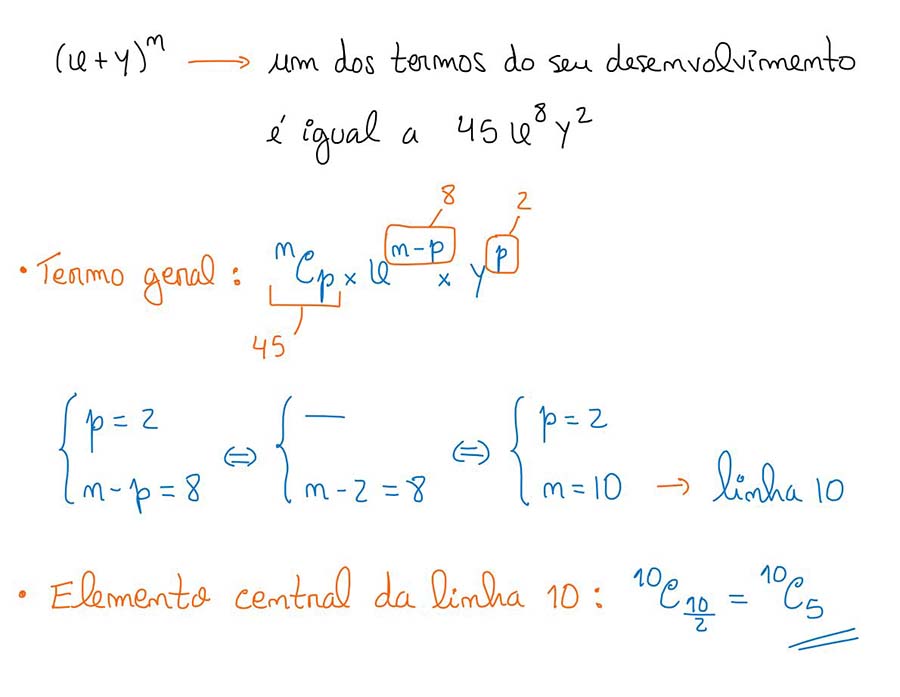 (x+y)^n → um dos termos do seu desenvolvimento
é igual a 45x^8y^2
8 2
• Termo geral: ^nC_p × x^{n-p} × y^p
45
{ p = 2 ⇔ { — ⇔ { p = 2
{ n-p = 8 { n-2 = 8 { n = 10 → linha 10
• Elemento central da linha 10: ^{10}C_{10/2} = ^{10}C_5